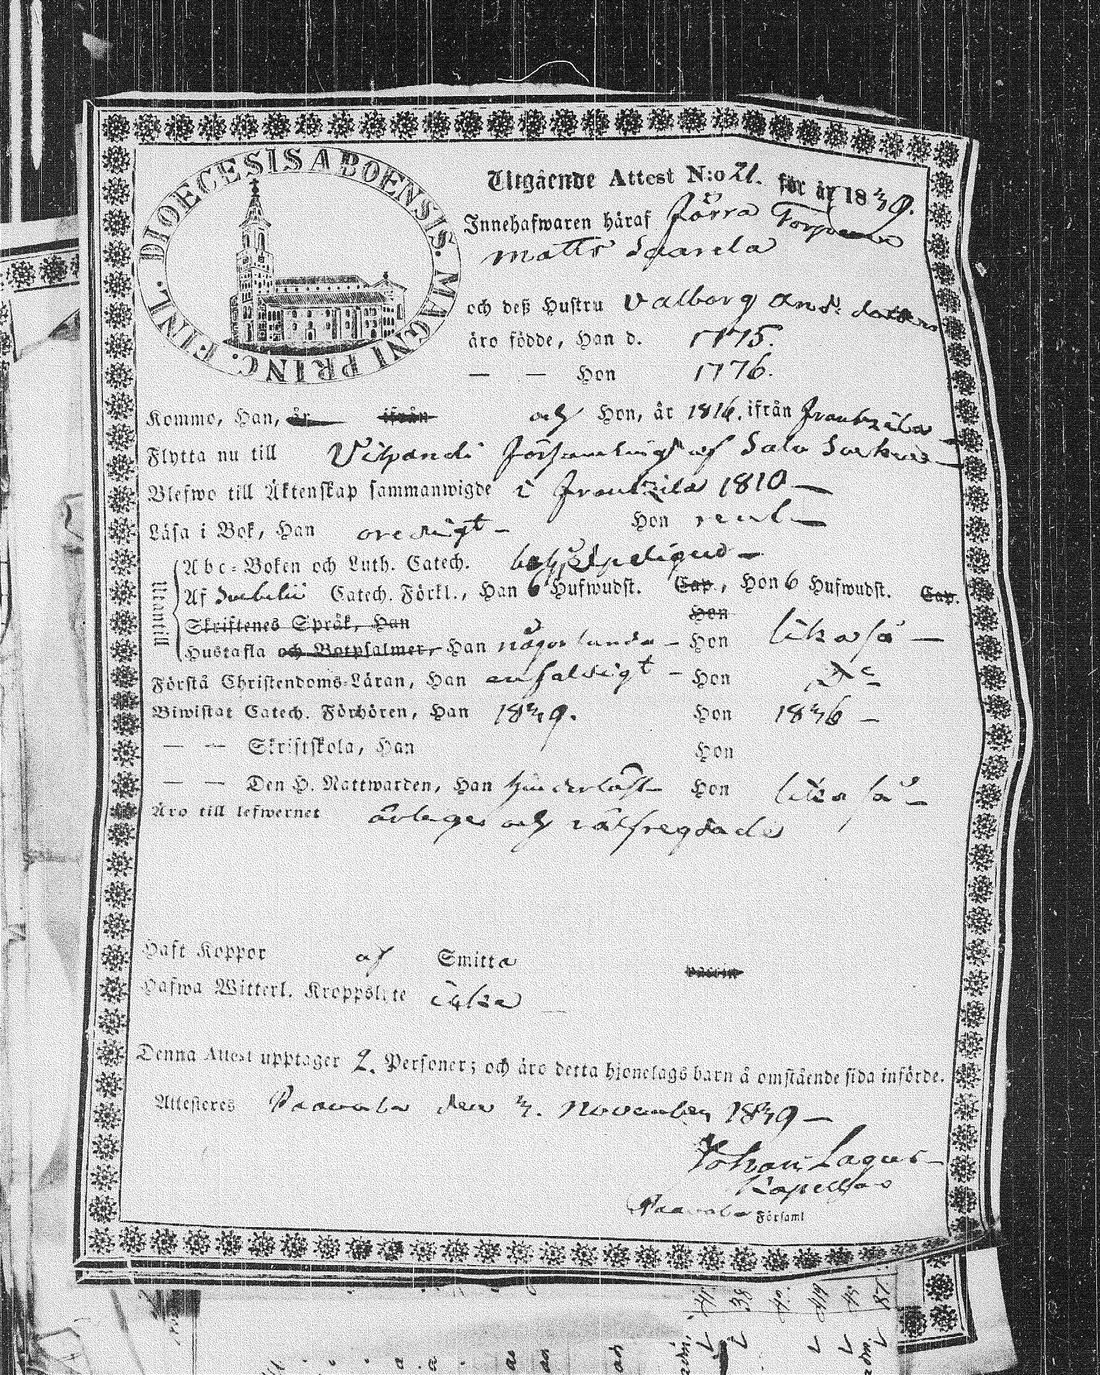 DIOECESIS ABOENSIS. MAGNI PRINC. FINL.
Utgående Attest N:o 21. för år 1839.
Innehafwaren häraf förra Torparen
Matts Saarela
och deß Hustru Valborg And:s dotter
äro födde, Han d. 1775.
— — Hon 1776.
Kommo, Han, år ifrån och Hon, år 1816. ifrån Frantzila
Flytta nu till Vihandi Församling af Salo Socken
Blefwo till Äktenskap sammanwigde i Frantzila 1810 —
Läsa i Bok, Han oredigt — Hon rent —
Utantill
Abc-Boken och Luth. Catech.
Af Svebelii Catech. Förkl., Han 6 Hufwudst. Cap., Hon 6 Hufwudst. Cap.
Skriftenes Språk, Han Hon
Hustafla och Botpsalmer, Han någorlunda — Hon lika så —
Förstå Christendoms-Läran, Han enfaldigt — Hon D:o
Biwistat Catech. Förhören, Han 1839. Hon 1836 —
— — Skriftskola, Han Hon
— — Den H. Nattwarden, Han hinderlöst Hon lika så —
Äro till lefwernet ärlige och välfregdade
Haft Koppor af Smitta
Hafwa Witterl. Kroppslyte icke
Denna Attest upptager 2. Personer; och äro detta hjonelags barn å omstående sida införde.
Attesteres Paavola den 3. November 1839 —
Johan Lagus
Kapellan
Paavola Församl